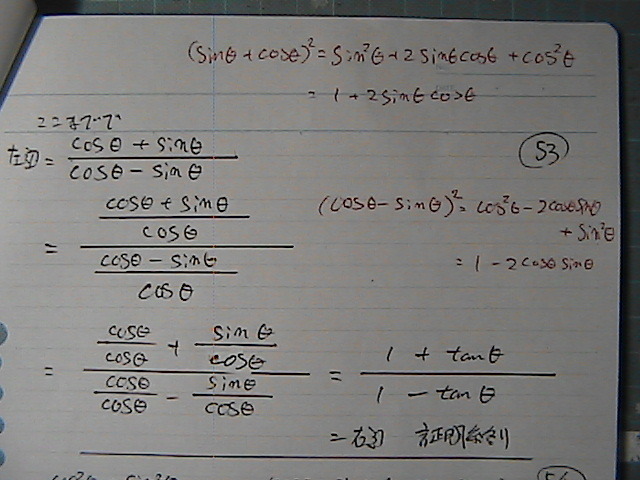 (sinθ + cosθ)² = sin²θ + 2 sinθ cosθ + cos²θ
= 1 + 2 sinθ cosθ
ここまで
左辺 = (cosθ + sinθ) / (cosθ − sinθ)
53
= ((cosθ + sinθ) / cosθ) / ((cosθ − sinθ) / cosθ)
(cosθ − sinθ)² = cos²θ − 2cosθ sinθ
+ sin²θ
= 1 − 2 cosθ sinθ
= (cosθ/cosθ + sinθ/cosθ) / (cosθ/cosθ − sinθ/cosθ) = (1 + tanθ) / (1 − tanθ)
= 右辺 証明終り